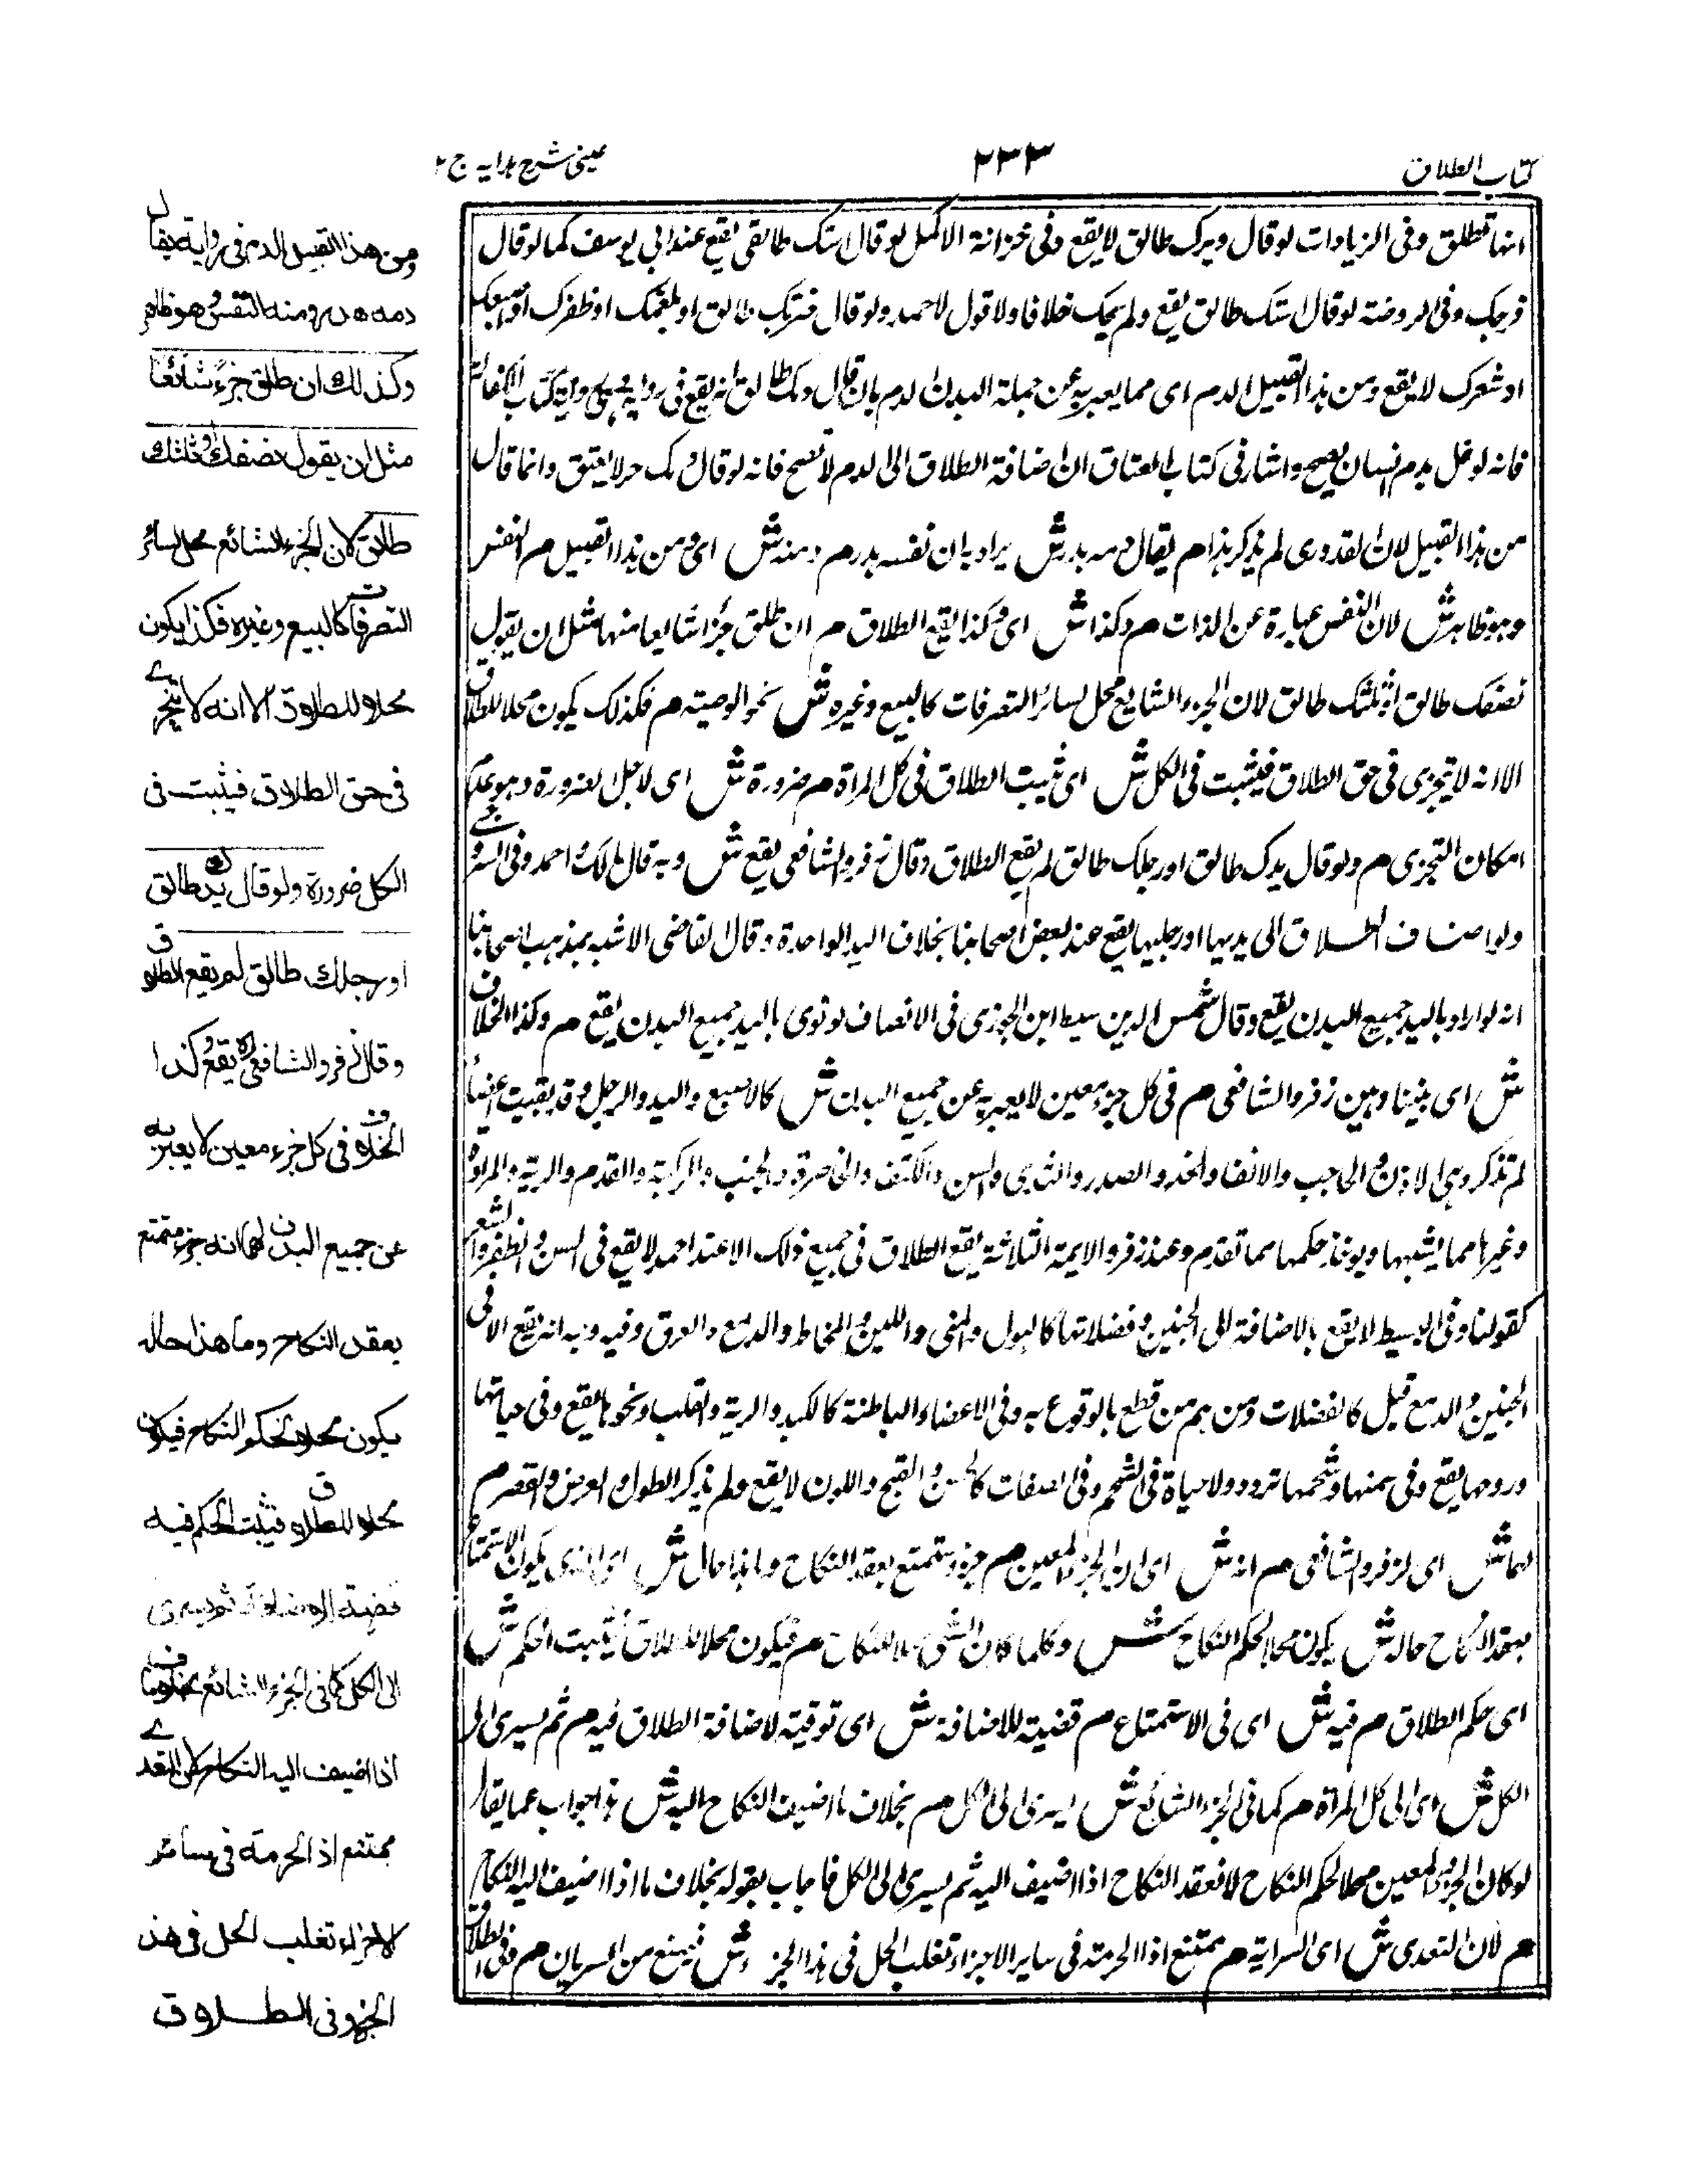 كتاب الطلاق
٢٣٣
عينى شرح هدايه ج ٢
انها تطلق وفى الزيادات لو قال دبرك طالق لا يقع وفى خزانة الاكمل لو قال استك طالقى يقع عند ابى يوسف كما لو قال
فرجك وفى الروضة لو قال استك طالق يقع ولم يحك خلافا ولا قول لاحمد ولو قال طالق او بلغمك او ظفرك او
او شعرك لا يقع ومن هذا القبيل الدم اى مما يعبر به عن جملة البدن الدم بان قال دمك طالق انه يقع فى رواية كتاب الكفالة
فانه لو كفل بدم انسان يصح واشار فى كتاب العتاق ان اضافة الطلاق الى الدم لا تصح فانه لو قال دمك حر لا يعتق وانما قال
من هذا القبيل لان القدورى لم يذكر هذا م يقال دمه هدر ش يراد به ان نفسه هدر م ومنه ش اى ومن هذا القبيل م النفس
وهو ظاهر ش لان النفس عبارة عن الذات م وكذا ش اى وكذا يقع الطلاق م ان طلق جزأ شايعا منها مثل ان يقول
نصفك طالق او ثلثك طالق لان الجزء الشايع محل لسائر التصرفات كالبيع وغيره ش نحو الوصية م فكذلك يكون محلا للطلاق
الا انه لا يتجزى فى حق الطلاق فيثبت فى الكل ش اى يثبت الطلاق فى كل المراة م ضرورة ش اى لاجل الضرورة وهو عدم
امكان التجزى م ولو قال يدك طالق او رجلك طالق لم يقع الطلاق وقال زفر والشافعى يقع ش وبه قال مالك واحمد وفى السروجى
ولو اضاف الطلاق الى يديها او رجليها يقع عند بعض اصحابنا بخلاف اليد الواحدة وقال القاضى الاشبه بمذهب اصحابنا
انه لو اراد باليد جميع البدن يقع وقال شمس الدين سبط ابن الجوزى فى الانصاف لو نوى باليد جميع البدن يقع م وكذا الخلاف
ش اى بيننا وبين زفر والشافعى م فى كل جزء معين لا يعبر به عن جميع البدن ش كالاصبع واليد والرجل وقد بقيت اعضاء
لم تذكر وهى الاذن والحاجب والانف والخد والصدر والثدى والسن والكتف والخاصرة والجنب والركبة والقدم والرية والمرارة
وغيرها مما يشبهها ويوخذ حكمها مما تقدم وعند زفر والايمة الثلاثة يقع الطلاق فى جميع ذلك الا عند احمد لا يقع فى السن والظفر والشعر
كقولنا وفى البسيط لا يقع بالاضافة الى الجنين وفضلاتها كالبول والمنى واللبن والمخاط والدمع والعرق وفيه وجه انه يقع الا فى
الجنين والدمع قيل كالفضلات ومن هم من قطع بالوقوع به وفى الاعضاء الباطنة كالكبد والرية والقلب ونحوها يقع وفى حياتها
وروحها يقع وفى سمنها وشحمها تردد ولا حياة فى الشحم وفى الصفات كالحسن والقبح واللون لا يقع ولم يذكر الطول والعرض والقصر م
لهما ش اى لزفر والشافعى م انه ش اى ان الجزء المعين م جزء مستمتع بعقد النكاح وما هذا حاله ش اى الذى يكون الاستمتاع
بعقد النكاح حاله ش يكون محلا لحكم النكاح ش وكلما كان الشى محلا للنكاح م فيكون محلا للطلاق فيثبت الحكم ش
اى حكم الطلاق م فيه ش اى فى الاستمتاع م قضية للاضافة ش اى توفية لاضافة الطلاق فيه م ثم يسرى الى
الكل ش اى الى كل المراة م كما فى الجزء الشائع ش يسرى الى الكل م بخلاف ما اضيف النكاح اليه ش هذا جواب عما يقال
لو كان الجزء المعين محلا لحكم النكاح لانعقد النكاح اذا اضيف اليه ثم يسرى الى الكل فاجاب بقوله بخلاف ما اذا اضيف اليه النكاح
م لان التعدى ش اى السراية م ممتنع اذ الحرمة فى ساير الاجزاء تغلب الحل فى هذا الجزء ش فيمنع من السريان م وفى الطلاق
ومن هذا القبيل الدم فى رواية يقال
دمه هدر ومنه النفس وهو ظاهر
وكذلك ان طلق جزءً شائعًا
مثل ان يقول نصفك او ثلثك
طالق لان الجزء الشائع محل لسائر
التصرفات كالبيع وغيره فكذا يكون
محلا للطلاق الا انه لا يتجزے
فى حق الطلاق فيثبت فى
الكل ضرورة ولو قال يدك طالق
او رجلك طالق لم يقع الطلاق
وقال زفر والشافعى يقع وكذا
الخلاف فى كل جزء معين لا يعبر به
عن جميع البدن لهما انه جزء متمتع
بعقد النكاح وما هذا حاله
يكون محلا لحكم النكاح فيكون
محلا للطلاق فيثبت الحكم فيه
قضية الاضافة ثم يسرى
الى الكل كما فى الجزء الشائع بخلاف ما
اذا اضيف اليه النكاح لان التعدے
ممتنع اذ الحرمة فى سائر
الاجزاء تغلب الحل فى هذا
الجزء وفى الطلاق